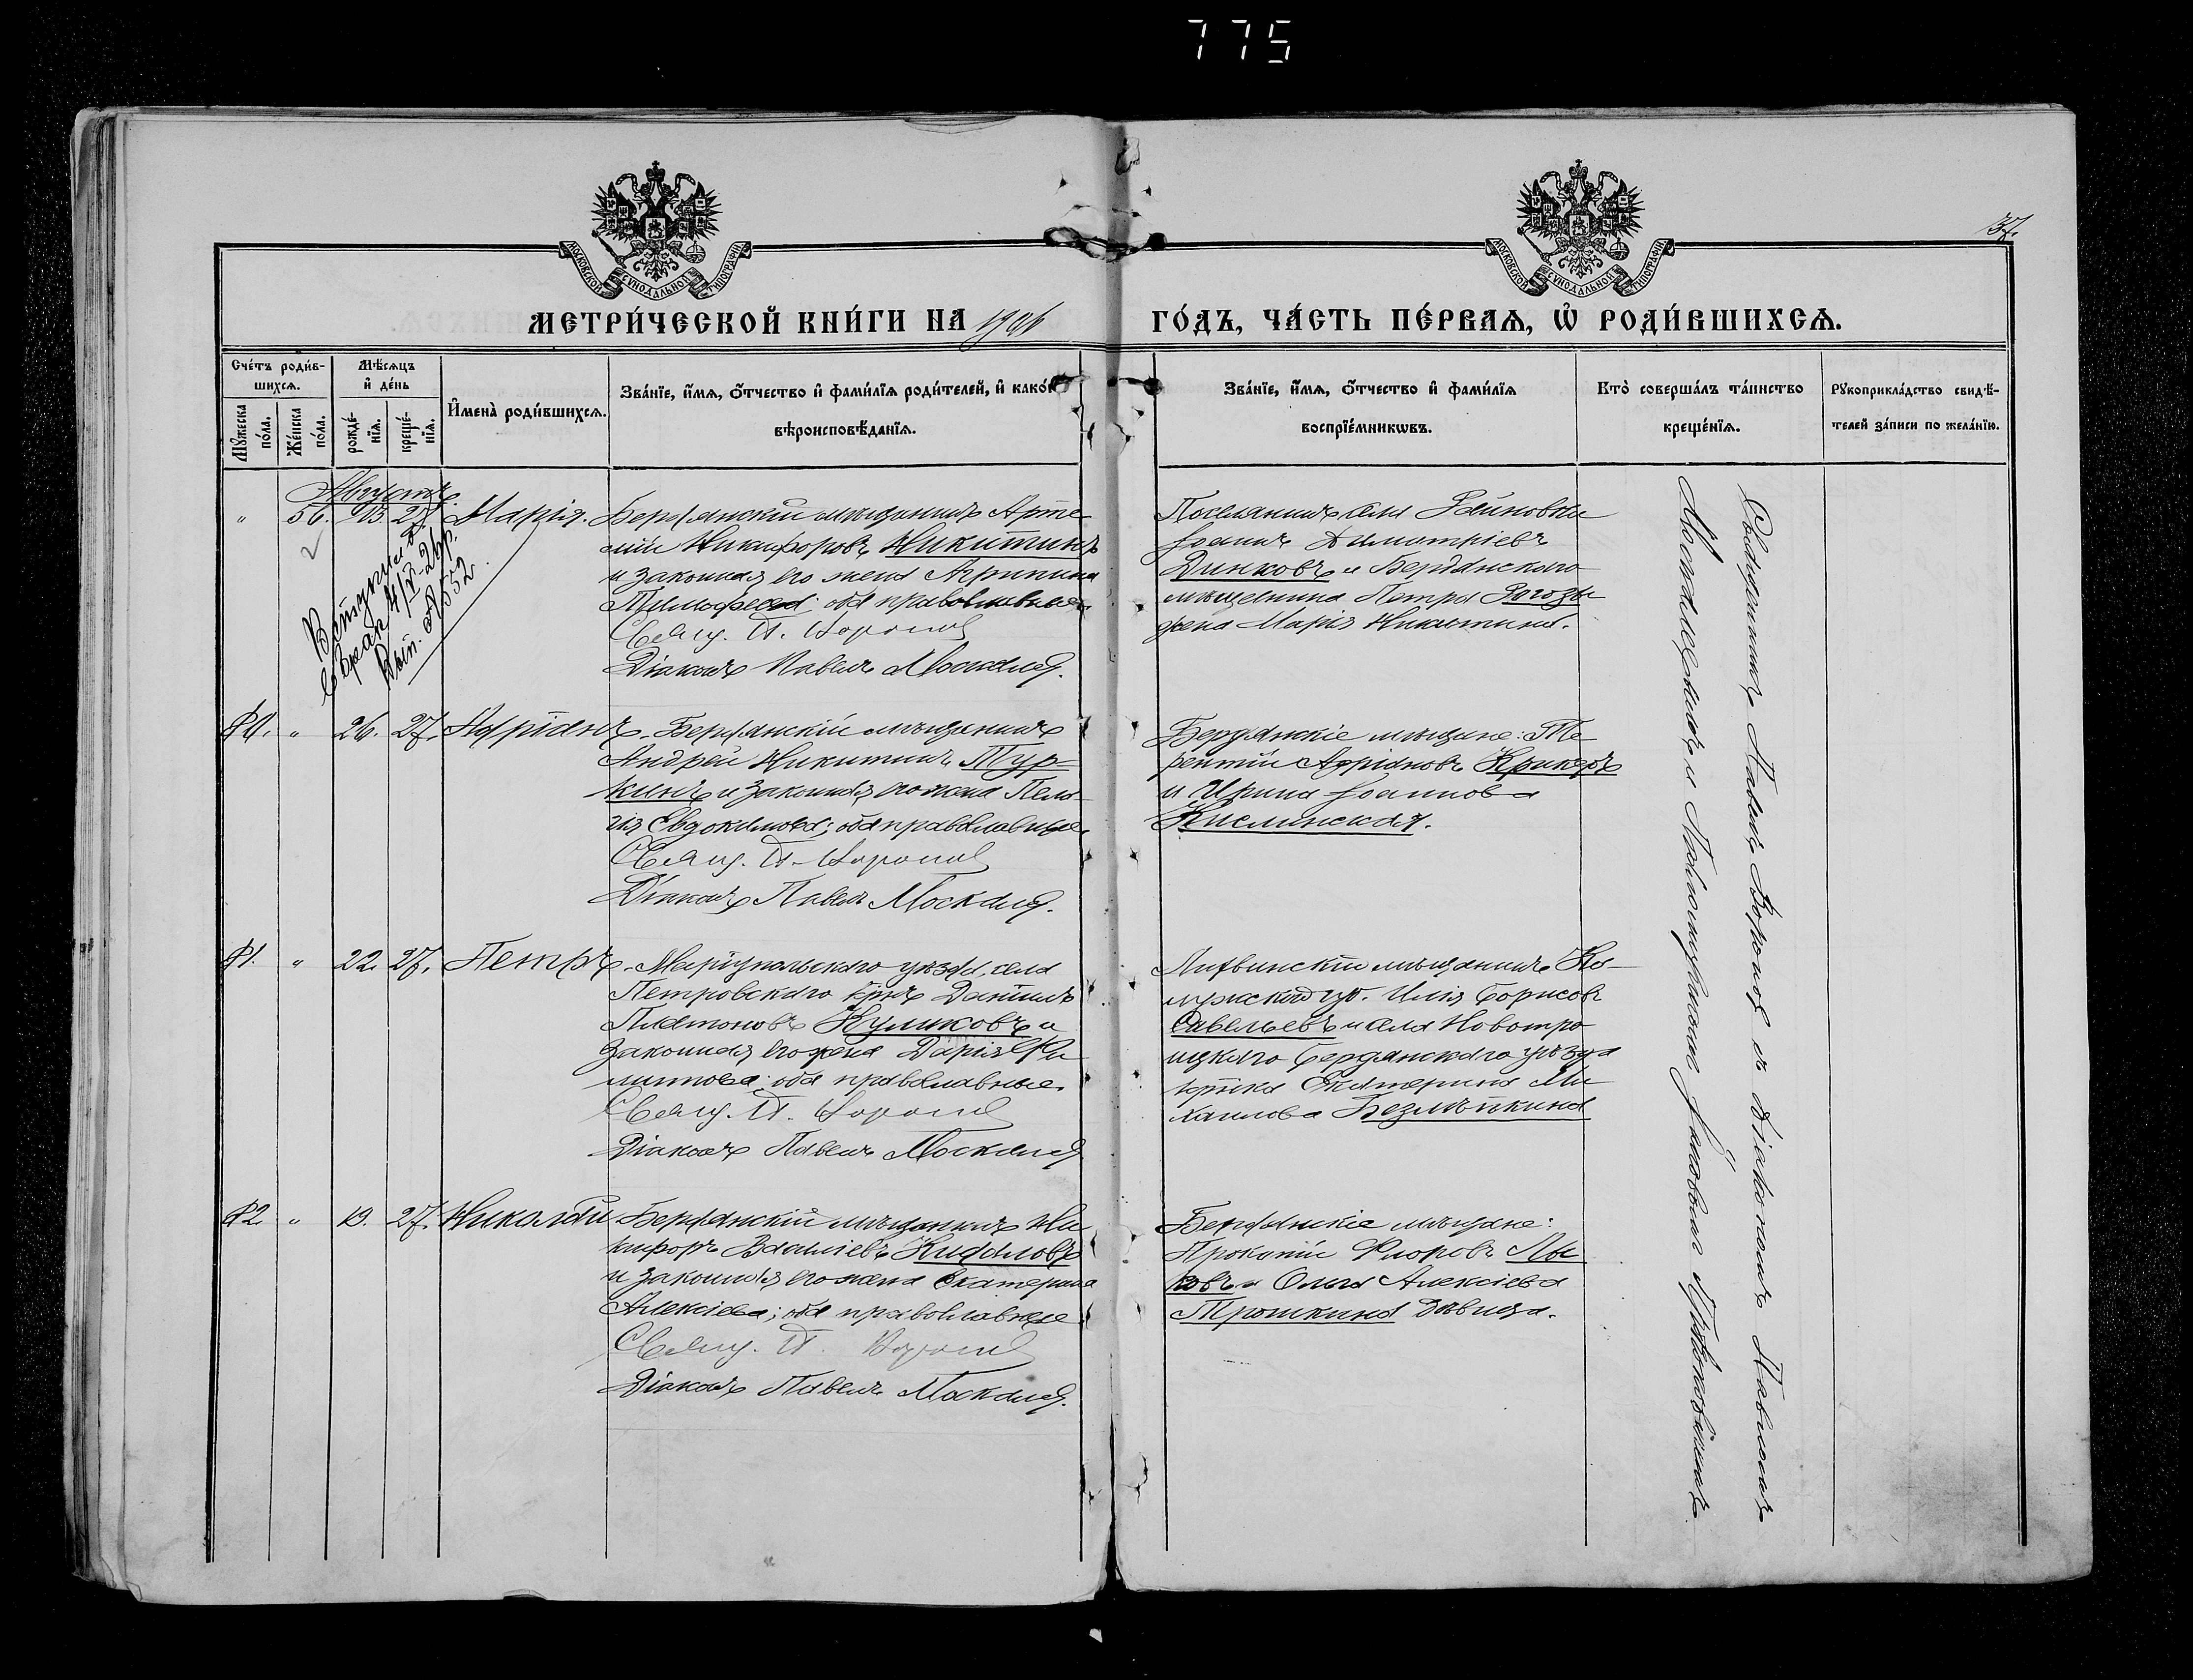 775
37.
МОСКОВСКОЙ СѴНОДАЛЬНОЙ ТИПОГРАФІИ
МОСКОВСКОЙ СѴНОДАЛЬНОЙ ТИПОГРАФІИ
МЕТРИ́ЧЕСКОЙ КНИ́ГИ НА 1906
ГО́ДЪ, ЧА́СТЬ ПЕ́РВАѦ, Ѡ҆ РОДИ́ВШИХСѦ.
Сче́тъ роди́в-
шихсѧ.
Мѣ́сѧцъ
и҆ де́нь
Мꙋ́жеска
по́ла.
Же́нска
по́ла.
рожде́-
нїѧ.
креще́-
нїѧ.
И҆мена̀ роди́вшихсѧ.
Зва́нїе, и҆́мѧ, ѻ҆́тчество и҆ фами́лїѧ роди́телей, и҆ како́гѡ
вѣроисповѣ́данїѧ.
Зва́нїе, и҆́мѧ, ѻ҆́тчество и҆ фами́лїѧ
воспрїе́мникѡвъ.
Кто̀ соверша́лъ та́инство
креще́нїѧ.
Рꙋкоприкла́дство свидѣ́-
телей за́писи по жела́нїю.
Августъ.
" 56. 27. Марія.
Бердянскій мѣщанинъ Арте
мій Никифоровъ Никитинъ
и законная его жена Агрипина
Тимофеева; оба православные.
Свящ. П. Воронов
Діаконъ Павелъ Москалев.
Поселянинъ села Райновки
Іоаннъ Димитріевъ
Динковъ и Бердянскаго
мѣщанина Петра Рогозы
жена Марія Никитина.
Вступила в
брак 4/V-26 р.
Вып. № 552
" 26. 27. Адріанъ.
Бердянскій мѣщанинъ
Андрей Никитинъ Тур-
кинъ и законная его жена Пела-
гія Евдокимова; оба православные.
Свящ. П. Воронов
Діаконъ Павелъ Москалев.
Бердянскіе мѣщане: Те
рентій Адріановъ Крикеръ
и Ирина Іоаннова
Кислинская.
" 22. 27. Петръ.
Маріупольскаго уѣзда, села
Петровскаго кр-нъ Даніилъ
Платоновъ Куликовъ и
законная его жена Дарія Фи
липпова; оба православные.
Свящ. П. Воронов
Діаконъ Павелъ Москалев
Лихвинскій мѣщанинъ Ка-
лужской губ. Илія Борисовъ
Савельевъ и села Новотро-
ицкаго Бердянскаго уѣзда
кр-нка Екатерина Ми
хаилова Безмѣнкина
" 19. 27. Николай
Бердянскій мѣщанинъ Ни
кифоръ Васильевъ Кидаловъ
и законная его жена Екатерина
Алексіева; оба православные
Свящ. П. Воронов
Діаконъ Павелъ Москалев.
Бердянскіе мѣщане:
Прокопій Флоровъ Лы
ковъ и Ольга Алексіева
Трошкина дѣвица.
Священникъ Павелъ Вороновъ съ діакономъ Павломъ